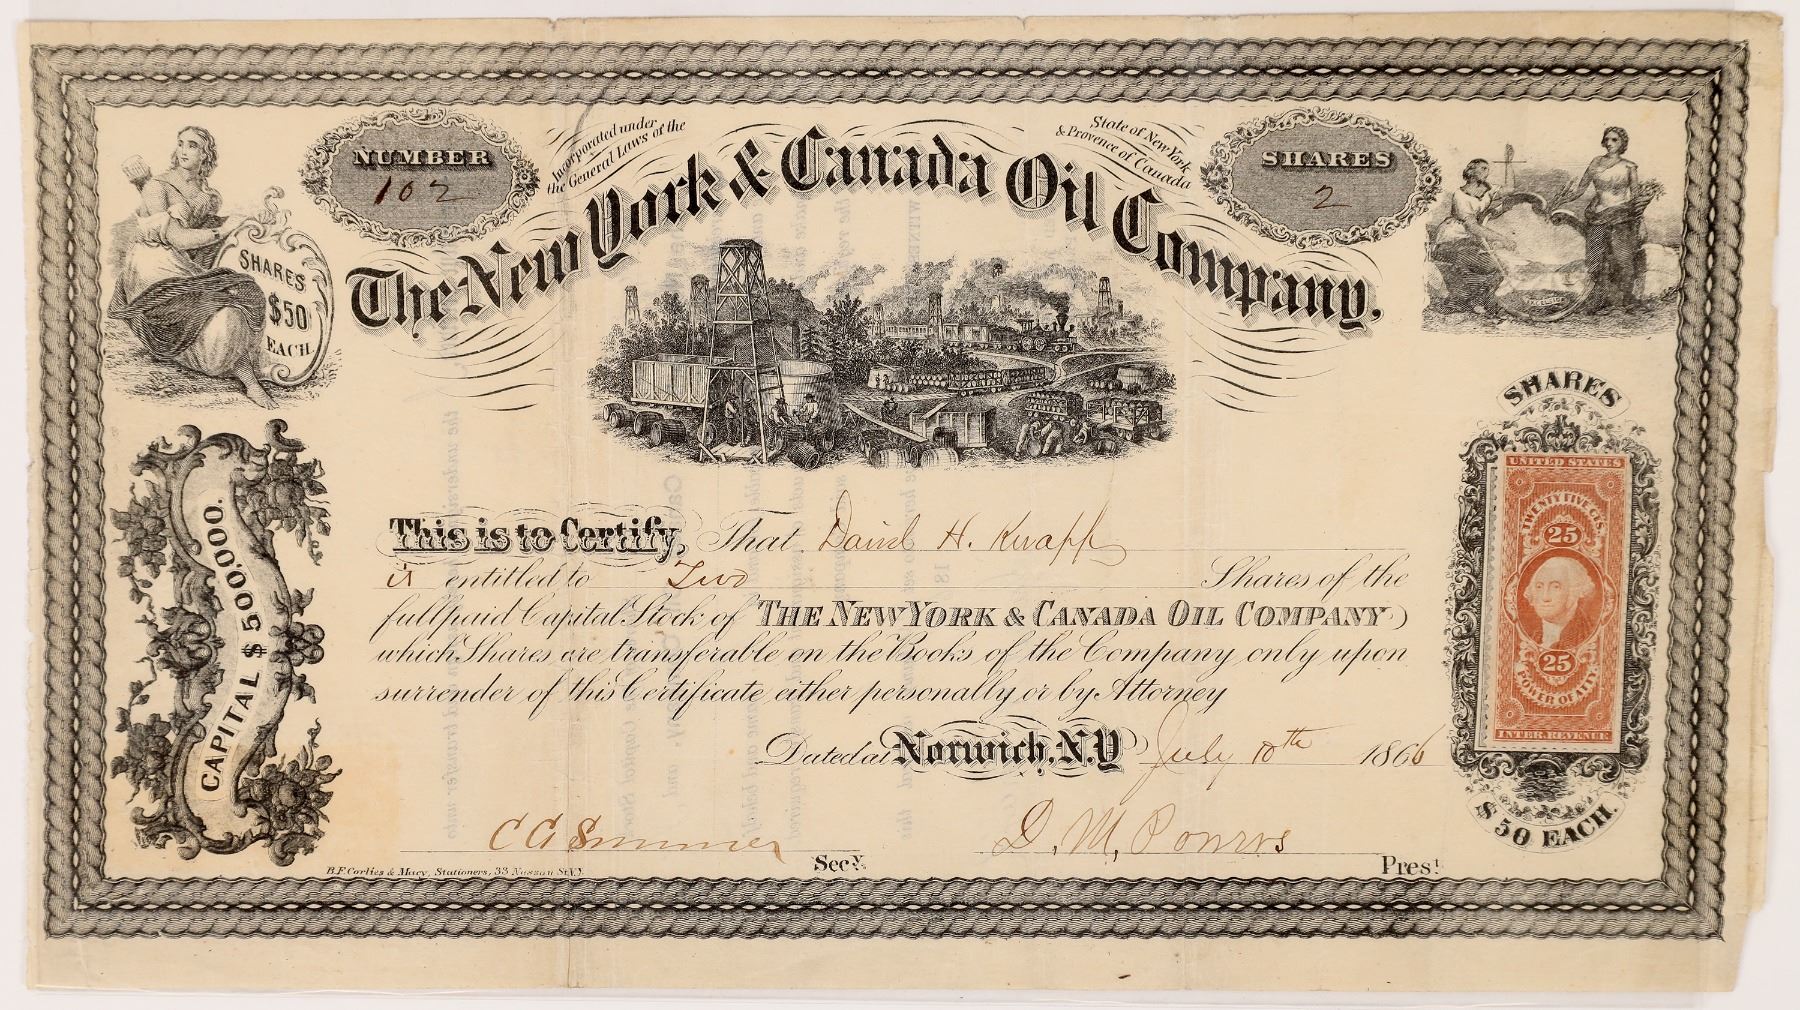 NUMBER
102
Incorporated under
the General Laws of the
State of New York
& Provence of Canada
SHARES
2
The New York & Canada Oil Company.
SHARES
$50
EACH
CAPITAL $500,000.
This is to Certify, That David H. Knapp
is entitled to Two Shares of the
full paid Capital Stock of THE NEW YORK & CANADA OIL COMPANY
which Shares are transferable on the Books of the Company only upon
surrender of this Certificate either personally or by Attorney
Dated at Norwich, N.Y. July 10th 1866
Secy.
D. M. Pres!
B.F. Corlies & Macy, Stationers, 33 Nassau St. N.Y.
SHARES
UNITED STATES
TWENTY FIVE CTS.
25
25
POWER OF ATTY.
INTER. REVENUE
$50 EACH.